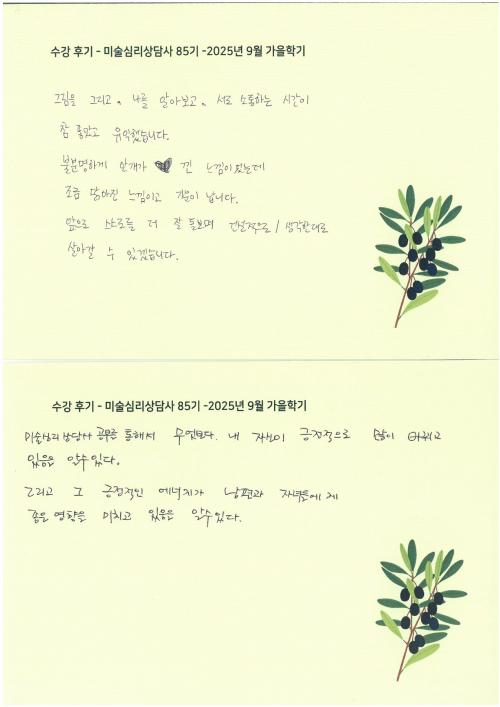 수강 후기 - 미술심리상담사 85기 -2025년 9월 가을학기
그림을 그리고, 나를 알아보고, 서로 소통하는 시간이
참 좋았고 유익했습니다.
불분명하게 안개가 낀 느낌이었는데
조금 맑아진 느낌이고 기운이 납니다.
앞으로 스스로를 더 잘 돌보며 긴장적으로 / 생각한대로
살아갈 수 있겠습니다.
수강 후기 - 미술심리상담사 85기 -2025년 9월 가을학기
미술심리상담사 공부를 통해서 무엇보다. 내 자신이 긍정적으로 많이 바뀌고
있음을 알수있다.
그리고 그 긍정적인 에너지가 남편과 자녀들에게
좋은 영향을 미치고 있음을 알수있다.